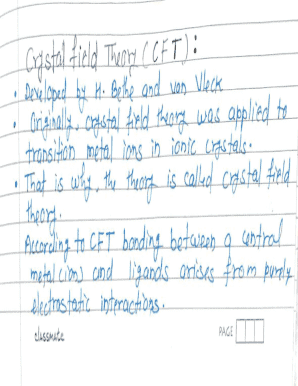 Crystal field Theory (CFT):
• Developed by H. Bethe and van Vleck
• Originally, crystal field theory was applied to
transition metal ions in ionic crystals.
• That is why, the theory is called crystal field
theory.
According to CFT bonding between a central
metal (im) and ligands arises from purely
electrostatic interactions.
classmate PAGE